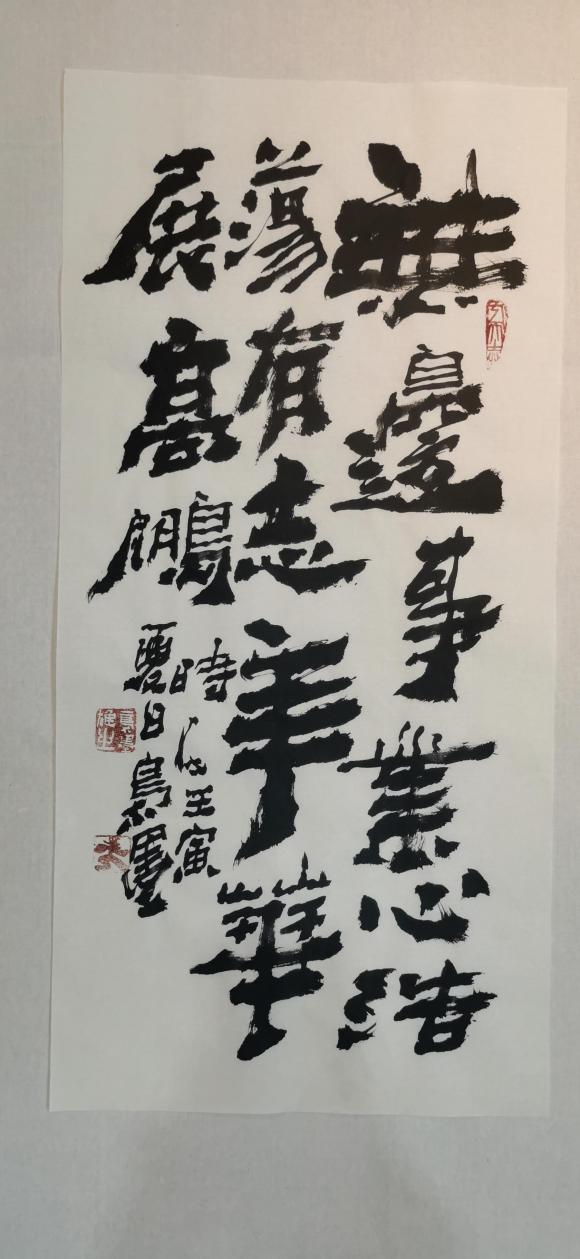 無邊事業心浩
蕩有志年華
展高鵬
時in壬寅
夏日烏墨